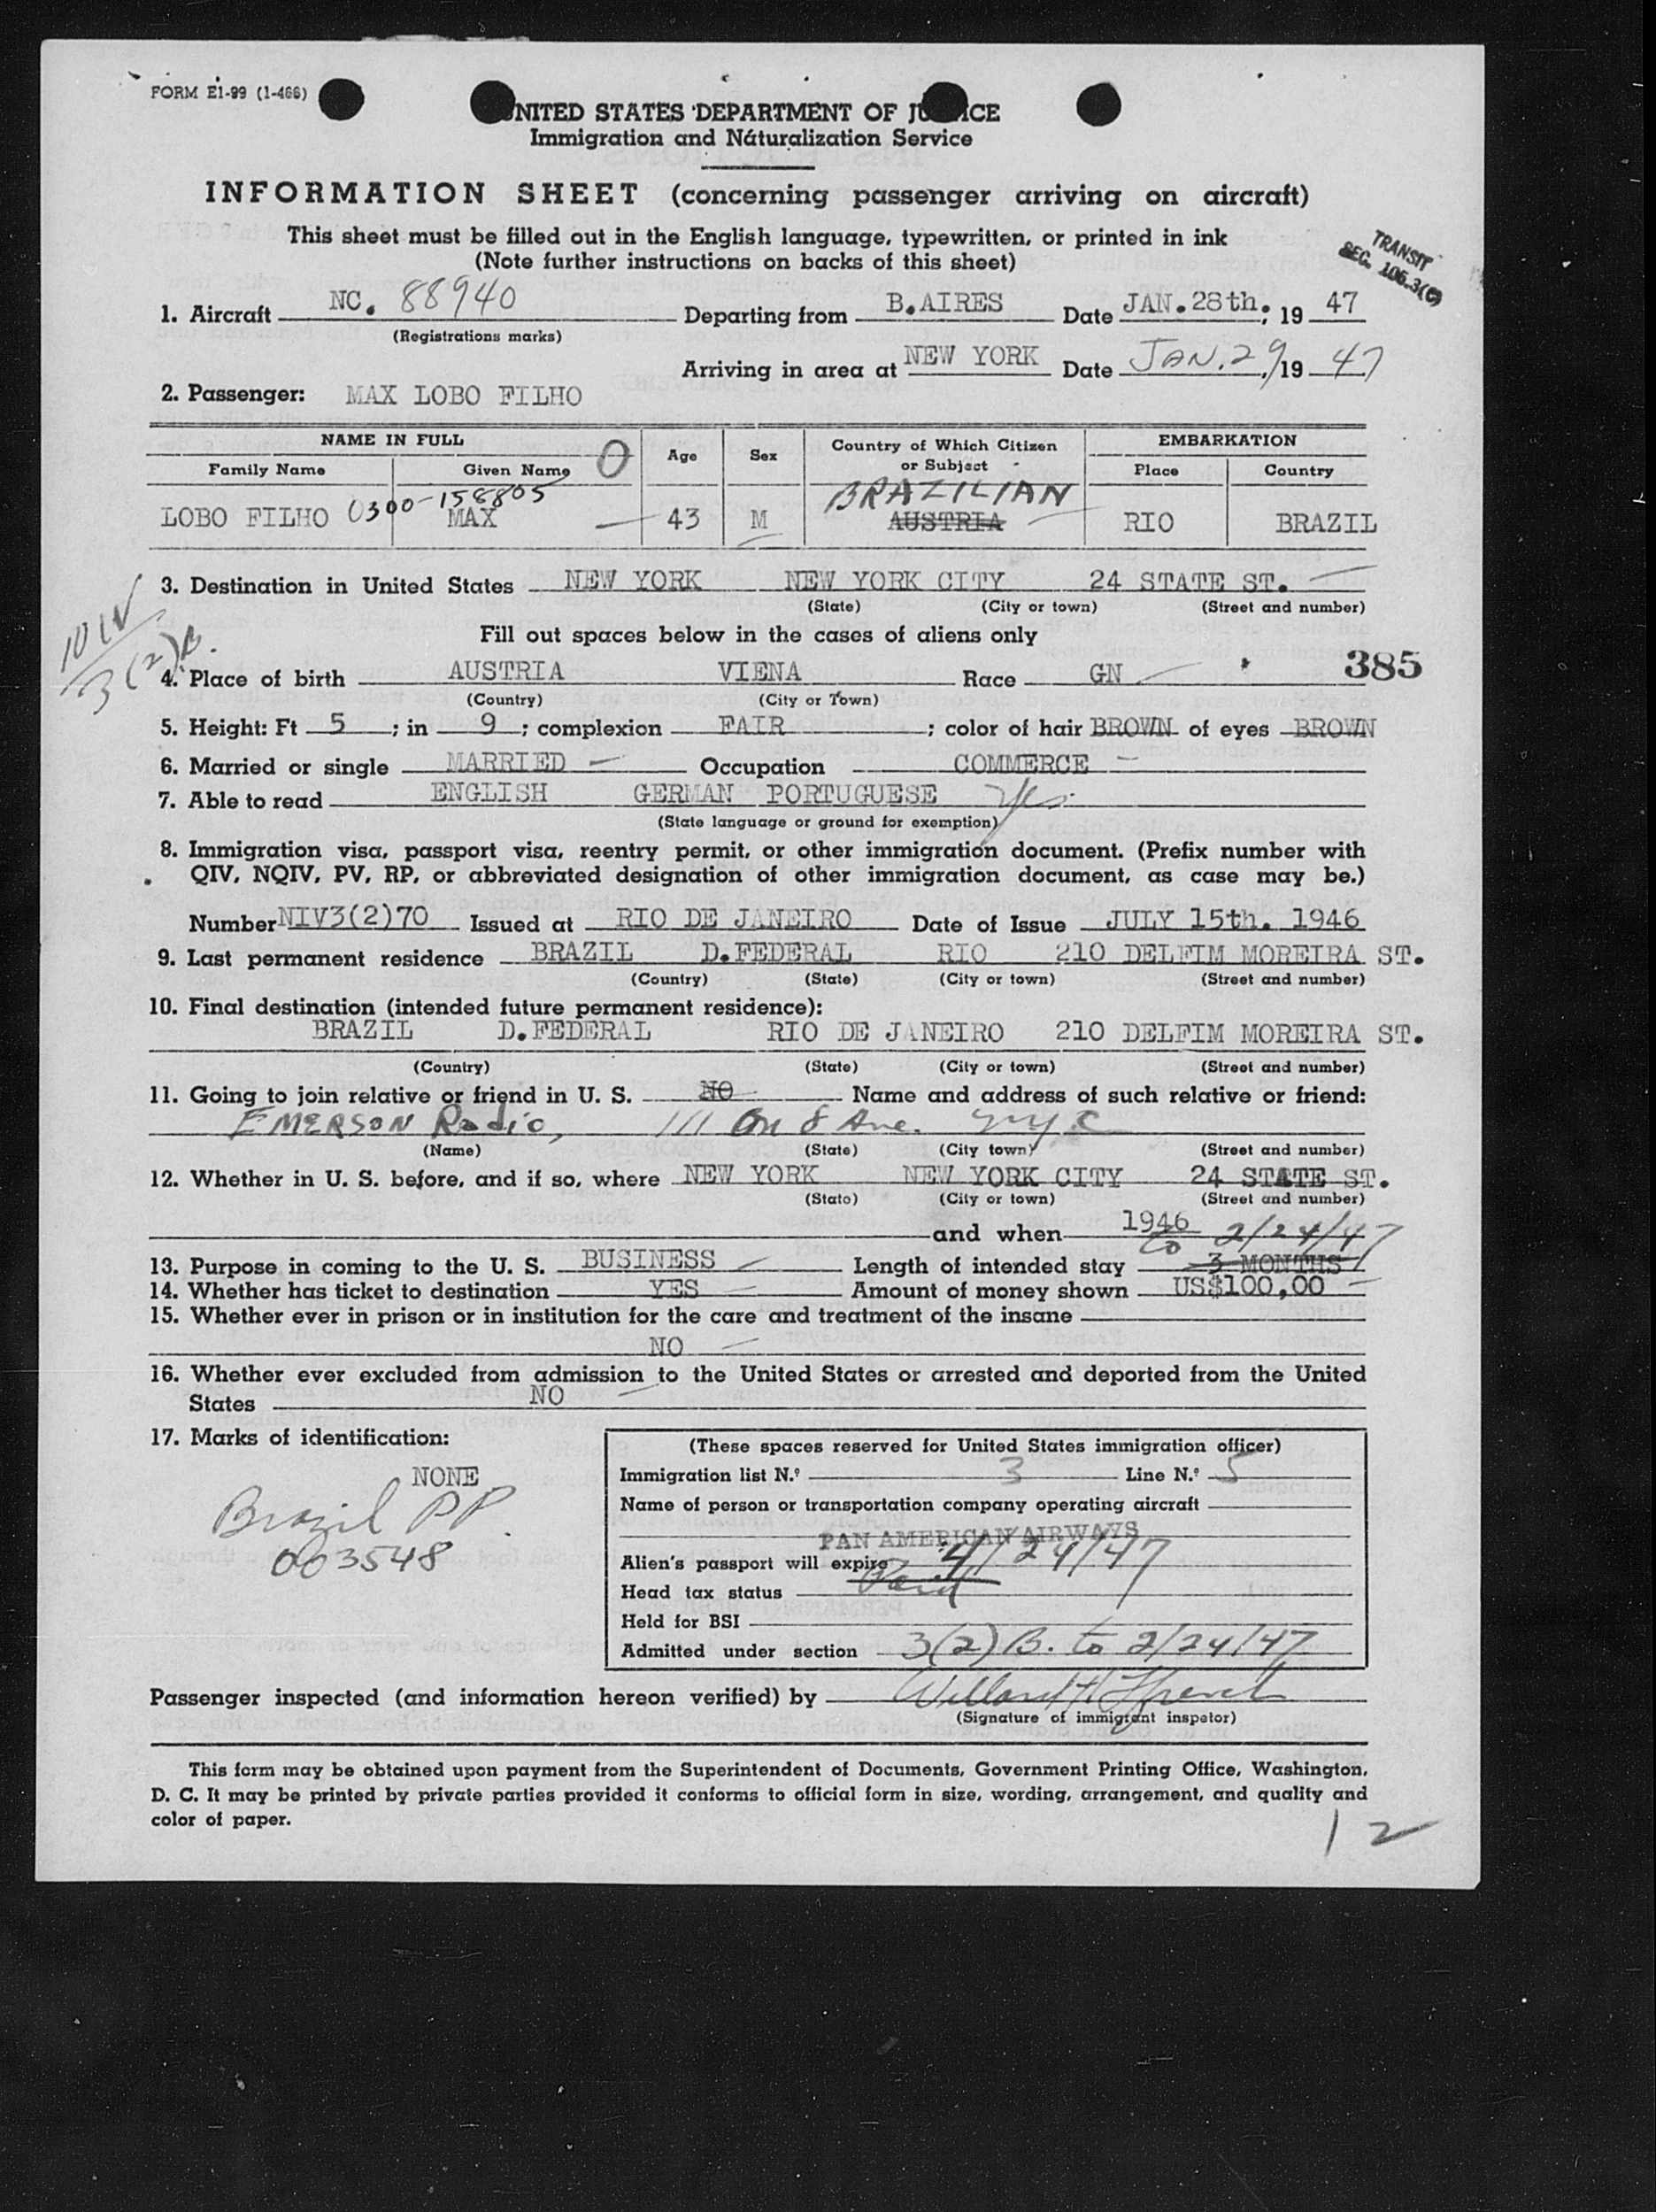 FORM E1-99 (1-466)
UNITED STATES DEPARTMENT OF JUSTICE
Immigration and Naturalization Service
INFORMATION SHEET (concerning passenger arriving on aircraft)
This sheet must be filled out in the English language, typewritten, or printed in ink
(Note further instructions on backs of this sheet)
TRANSIT
SEC. 106.3(C)
1. Aircraft NC. 88940 Departing from B.AIRES Date JAN.28th., 19 47
(Registrations marks)
Arriving in area at NEW YORK Date JAN. 29, 19 47
2. Passenger: MAX LOBO FILHO
NAME IN FULL O Age Sex Country of Which Citizen or Subject EMBARKATION
Family Name Given Name Place Country
0300-158805 BRAZILIAN
LOBO FILHO MAX 43 M AUSTRIA RIO BRAZIL
3. Destination in United States NEW YORK NEW YORK CITY 24 STATE ST.
(State) (City or town) (Street and number)
3(2)B.
Fill out spaces below in the cases of aliens only
385
4. Place of birth AUSTRIA VIENA Race GN
(Country) (City or Town)
5. Height: Ft 5 ; in 9 ; complexion FAIR ; color of hair BROWN of eyes BROWN
6. Married or single MARRIED Occupation COMMERCE
7. Able to read ENGLISH GERMAN PORTUGUESE Yes
(State language or ground for exemption)
8. Immigration visa, passport visa, reentry permit, or other immigration document. (Prefix number with
QIV, NQIV, PV, RP, or abbreviated designation of other immigration document, as case may be.)
Number NIV3(2)70 Issued at RIO DE JANEIRO Date of Issue JULY 15th. 1946
9. Last permanent residence BRAZIL D.FEDERAL RIO 210 DELFIM MOREIRA ST.
(Country) (State) (City or town) (Street and number)
10. Final destination (intended future permanent residence):
BRAZIL D.FEDERAL RIO DE JANEIRO 210 DELFIM MOREIRA ST.
(Country) (State) (City or town) (Street and number)
11. Going to join relative or friend in U. S. NO Name and address of such relative or friend:
EMERSON Radio, 111 8 Ave. NYC
(Name) (State) (City town) (Street and number)
12. Whether in U. S. before, and if so, where NEW YORK NEW YORK CITY 24 STATE ST.
(State) (City or town) (Street and number)
and when 1946
to 2/24/47
13. Purpose in coming to the U. S. BUSINESS Length of intended stay 3 MONTHS
14. Whether has ticket to destination YES Amount of money shown US$100,00
15. Whether ever in prison or in institution for the care and treatment of the insane
NO
16. Whether ever excluded from admission to the United States or arrested and deported from the United
States NO
17. Marks of identification:
NONE
Brazil PP
003548
(These spaces reserved for United States immigration officer)
Immigration list N.º 3 Line N.º 5
Name of person or transportation company operating aircraft
PAN AMERICAN AIRWAYS
Alien's passport will expire 4/24/47
Head tax status Paid
Held for BSI
Admitted under section 3(2) B. to 2/24/47
Passenger inspected (and information hereon verified) by Willard H
(Signature of immigrant inspetor)
This form may be obtained upon payment from the Superintendent of Documents, Government Printing Office, Washington,
D. C. It may be printed by private parties provided it conforms to official form in size, wording, arrangement, and quality and
color of paper.
12